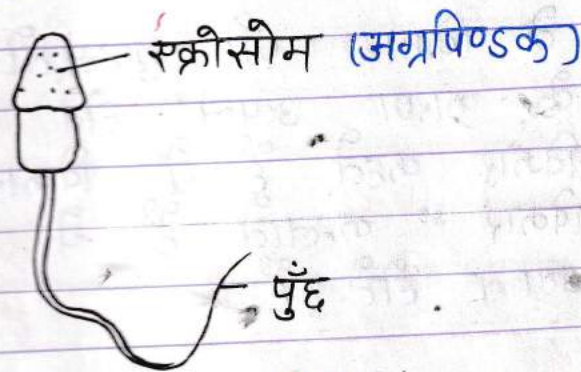 एक्रोसोम (अग्रपिण्डक)
पुँछ